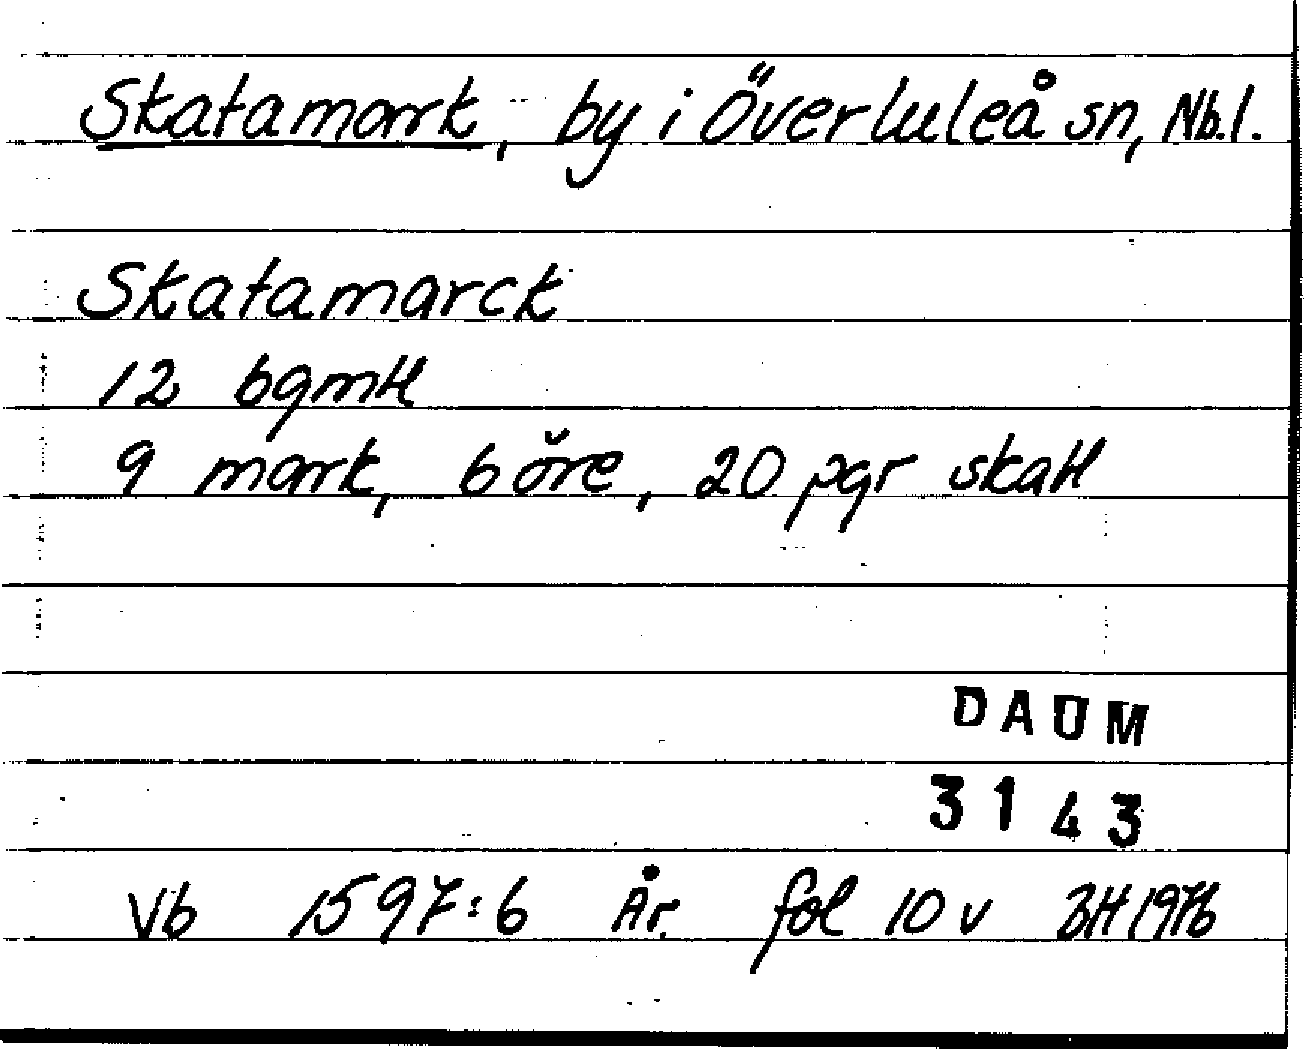 Skatamark, by i Överluleå sn, Nb.l.
Skatamarck
12 bgmtl
9 mark, 6 öre, 20 pgr skatt
DAUM
3143
Vb 1597:6 År. fol 10 v BH 1976